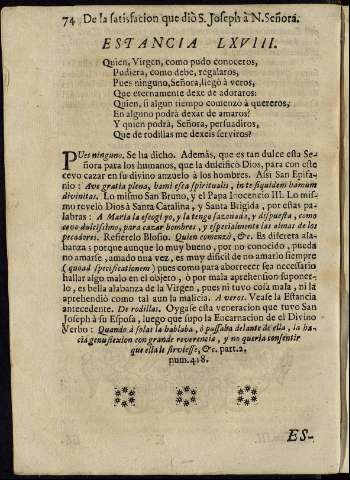 74 De la satisfacion que diò S. Joseph à N. Señora.
ESTANCIA LXVIII.
Quien, Virgen, como pudo conoceros,
Pudiera, como debe, regalaros,
Pues ninguno, Señora, llegò à veros,
Que eternamente dexe de adoraros:
Quien, si algun tiempo comenzò à quereros,
En alguno podrà dexar de amaros?
Y quien podrà, Señora, persuadiros,
Que de rodillas me dexeis serviros?
PUes ninguno. Se ha dicho. Además, que es tan dulce esta Se-
ñora para los humanos, que la dulcificò Dios, para con este
cevo cazar en su divino anzuelo à los hombres. Assi San Epifa-
nio: Ave gratia plena, hami esca spiritualis, in te siquidem hamum
divinitas. Lo mismo San Bruno, y el Papa Inocencio III. Lo mis-
mo revelò Dios à Santa Catalina, y Santa Brigida, por estas pa-
labras: A Maria la escogì yo, y la tengo sazonada, y dispuesta, como
cevo dulcissimo, para cazar hombres, y especialmente las almas de los
pecadores. Refierelo Blosio. Quien comenzò, &c. Es discreta ala-
banza: porque aunque lo muy bueno, por no conocido, pueda
no amarse, amado una vez, es muy dificil de no amarlo siempre
(quoad specificationem) pues como para aborrecer sea necessario
hallar algo malo en el objeto, ò por mala aprehension suponer-
lo, es bella alabanza de la Virgen, pues ni tuvo cosa mala, ni la
aprehendiò como tal aun la malicia. A veros. Vease la Estancia
antecedente. De rodillas. Oygase esta veneracion que tuvo San
Joseph à su Esposa, luego que supo la Encarnacion de el Divino
Verbo: Quando à solas la hablaba, ò passaba delante de ella, la ha-
cia genuflexion con grande reverencia, y no queria consentir
que ella le sirviesse, &c. part. 2.
num. 418.
ES-